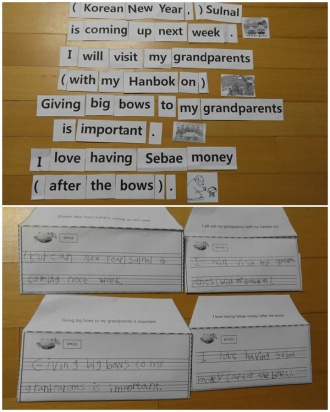 ( Korean New Year , ) Sulnal
is coming up next week .
I will visit my grandparents
( with my Hanbok on )
Giving big bows to my grandparents
is important .
I love having Sebae money
( after the bows ) .
SPEED
New Year) Sulnal is
coming next week.
SPEED
I will visit my
SPEED
Giving big bows to my grandparents is important.
Giving big bows to my
grandparents is important.
I love having Sebae money (after the bows).
SPEED
I love having Sebae
money (after the bows).